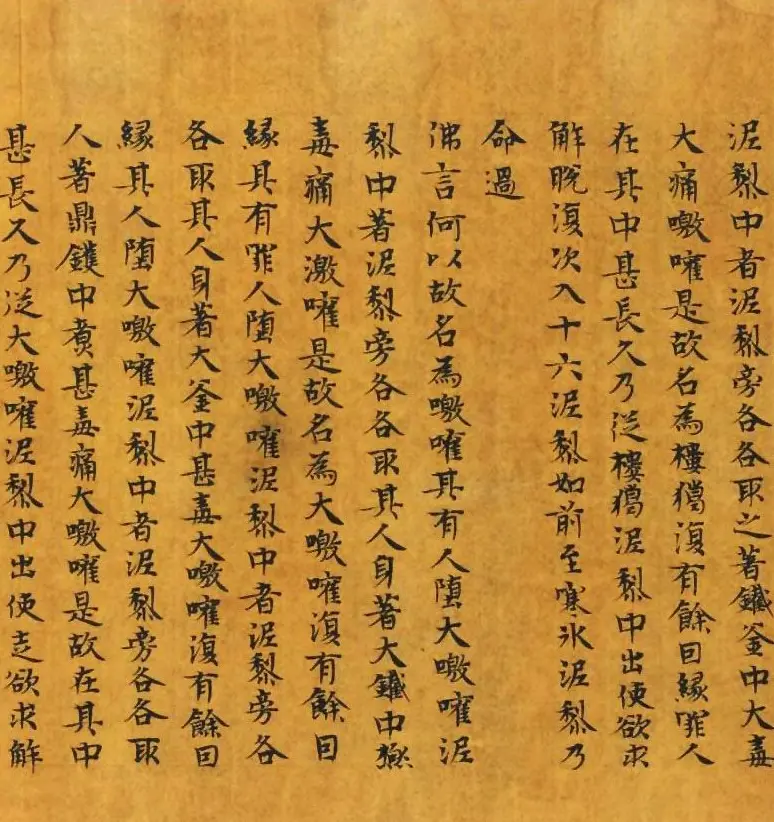 泥黎中者泥黎旁各各取之著鐵釜中大毒
大痛噭嚾是故名為樓獦復有餘因緣罪人
在其中甚長久乃從樓獦泥黎中出便欲求
解脫復次入十六泥黎如前至寒氷泥黎乃
命過
佛言何以故名為噭嚾其有人墮大噭嚾泥
黎中著泥黎旁各各取其人身著大鐵中
毒痛大激嚾是故名為大噭嚾復有餘因
緣其有罪人墮大噭嚾泥黎中者泥黎旁各
各取其人身著大釜中甚毒大噭嚾復有餘因
緣其人墮大噭嚾泥黎中者泥黎旁各各取
人著鼎鑊中煮甚毒痛大噭嚾是故在其中
甚長久乃從大噭嚾泥黎中出便走欲求解